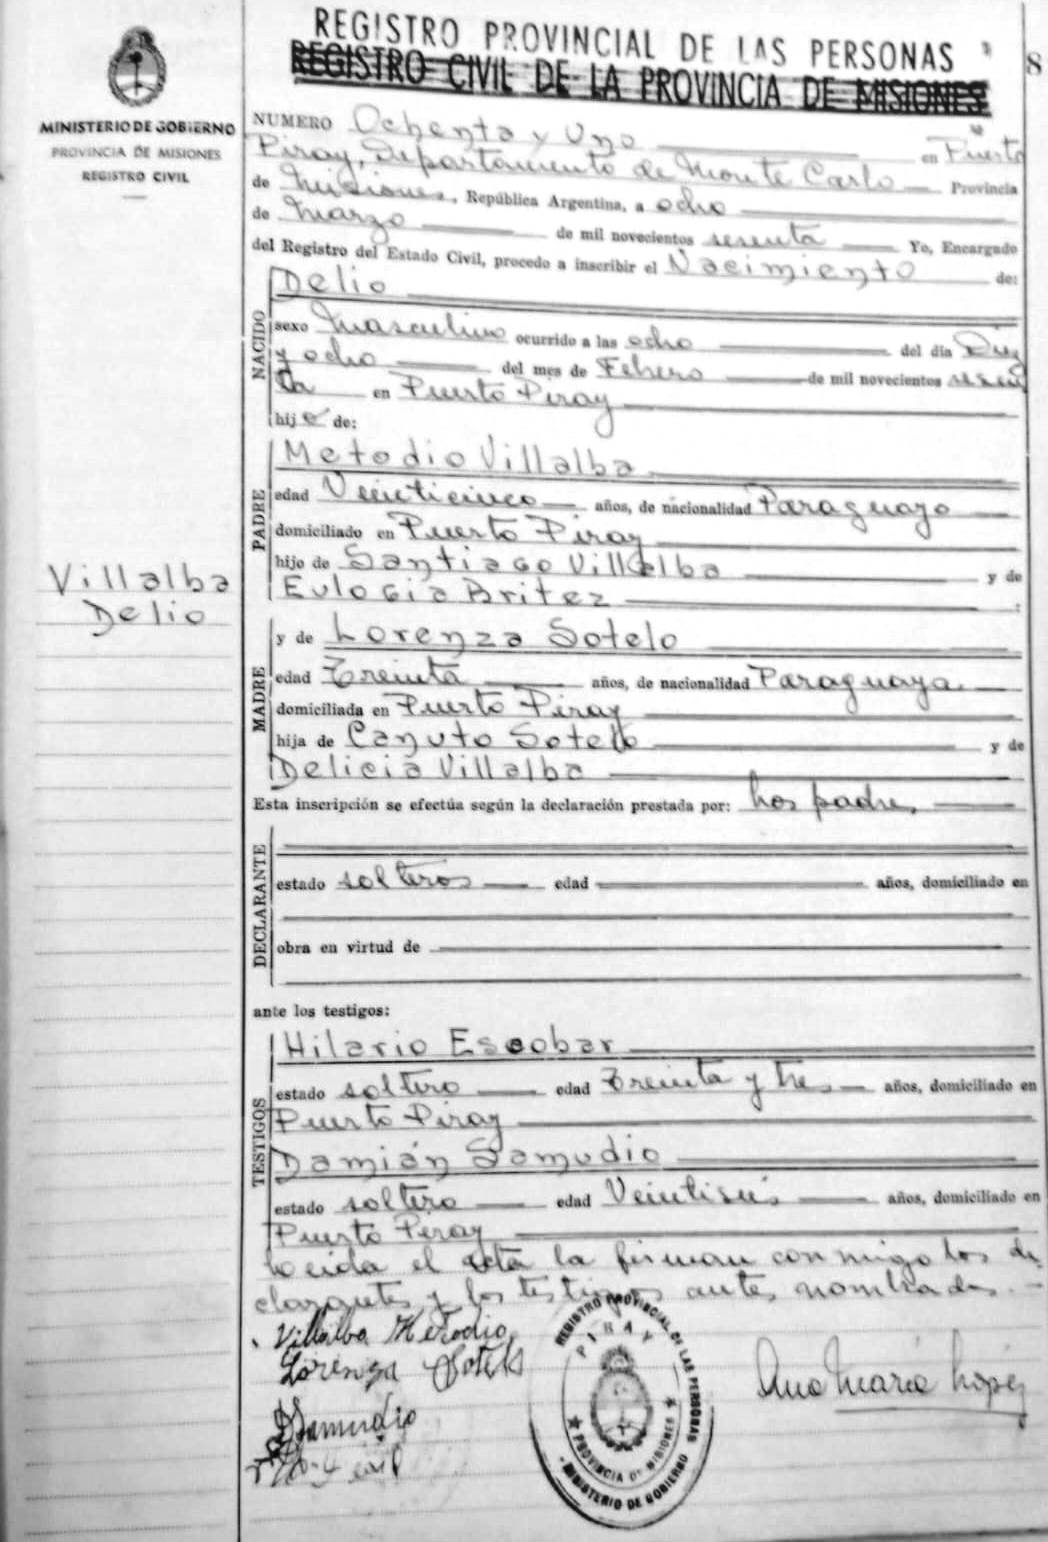 REGISTRO PROVINCIAL DE LAS PERSONAS
REGISTRO CIVIL DE LA PROVINCIA DE MISIONES
8
MINISTERIO DE GOBIERNO
PROVINCIA DE MISIONES
REGISTRO CIVIL
NUMERO Ochenta y Uno en Puerto
Piray, Departamento de Monte Carlo Provincia
de Misiones, República Argentina, a ocho
de Marzo de mil novecientos sesenta Yo, Encargado
del Registro del Estado Civil, procedo a inscribir el Nacimiento de:
NACIDO
Delio
sexo Masculino ocurrido a las ocho del día Diez
y ocho del mes de Febrero de mil novecientos sesen
ta en Puerto Piray
hijo de:
PADRE
Metodio Villalba
edad Veinticinco años, de nacionalidad Paraguayo
domiciliado en Puerto Piray
hijo de Santiago Villalba y de
Eulogia Britez :
Villalba
Delio
MADRE
y de Lorenza Sotelo
edad Treinta años, de nacionalidad Paraguaya.
domiciliada en Puerto Piray
hija de Canuto Sotelo y de
Delicia Villalba
Esta inscripción se efectúa según la declaración prestada por: Los padres
DECLARANTE
estado solteros edad años, domiciliado en
obra en virtud de
ante los testigos:
TESTIGOS
Hilario Escobar
estado soltero edad Treinta y tres años, domiciliado en
Puerto Piray
Damián Samudio
estado soltero edad Veintiseis años, domiciliado en
Puerto Piray
Leida el acta la firman conmigo los de
clarantes y los testigos antes nombrados.-
Villalba Metodio
Lorenza Sotelo
Samudio
Ana María López
REGISTRO PROVINCIAL DE LAS PERSONAS
PIRAY
PROVINCIA DE MISIONES
MINISTERIO DE GOBIERNO